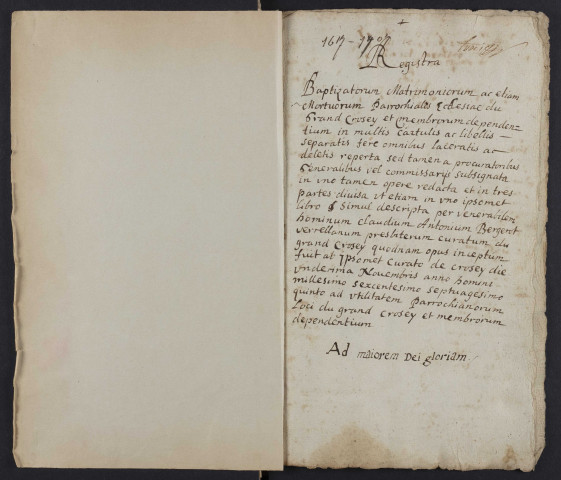 1617-1707
Registra
Baptizatorum Matrimoniorum ac etiam
Mortuorum Barrochialis Ecclesiae du
Grand Crosey et membrorum dependen=
tium in multis cartulis ac libellis
separatis fere omnibus laceratis ac
deletis reperta sed tamen a procuratoribus
Generalibus vel commissariis subsignata
in vno tamen opere redacta et in tres
partes diuisa vt etiam in vno ipsomet
libro simul descripta per venerabilem
hominum claudium Antonium Bergeret
verrellanum presbiterum curatum du
grand Crosey quodnam opus inceptum
fuit at ipsomet Curato de crosey die
vnderima Nouembris anno homini
millesimo sexcentesimo septuagesimo
quinto ad vtilitatem Barrochianorum
Loci du grand Crosey et membrorum
dependentium
Ad maiorem Dei gloriam